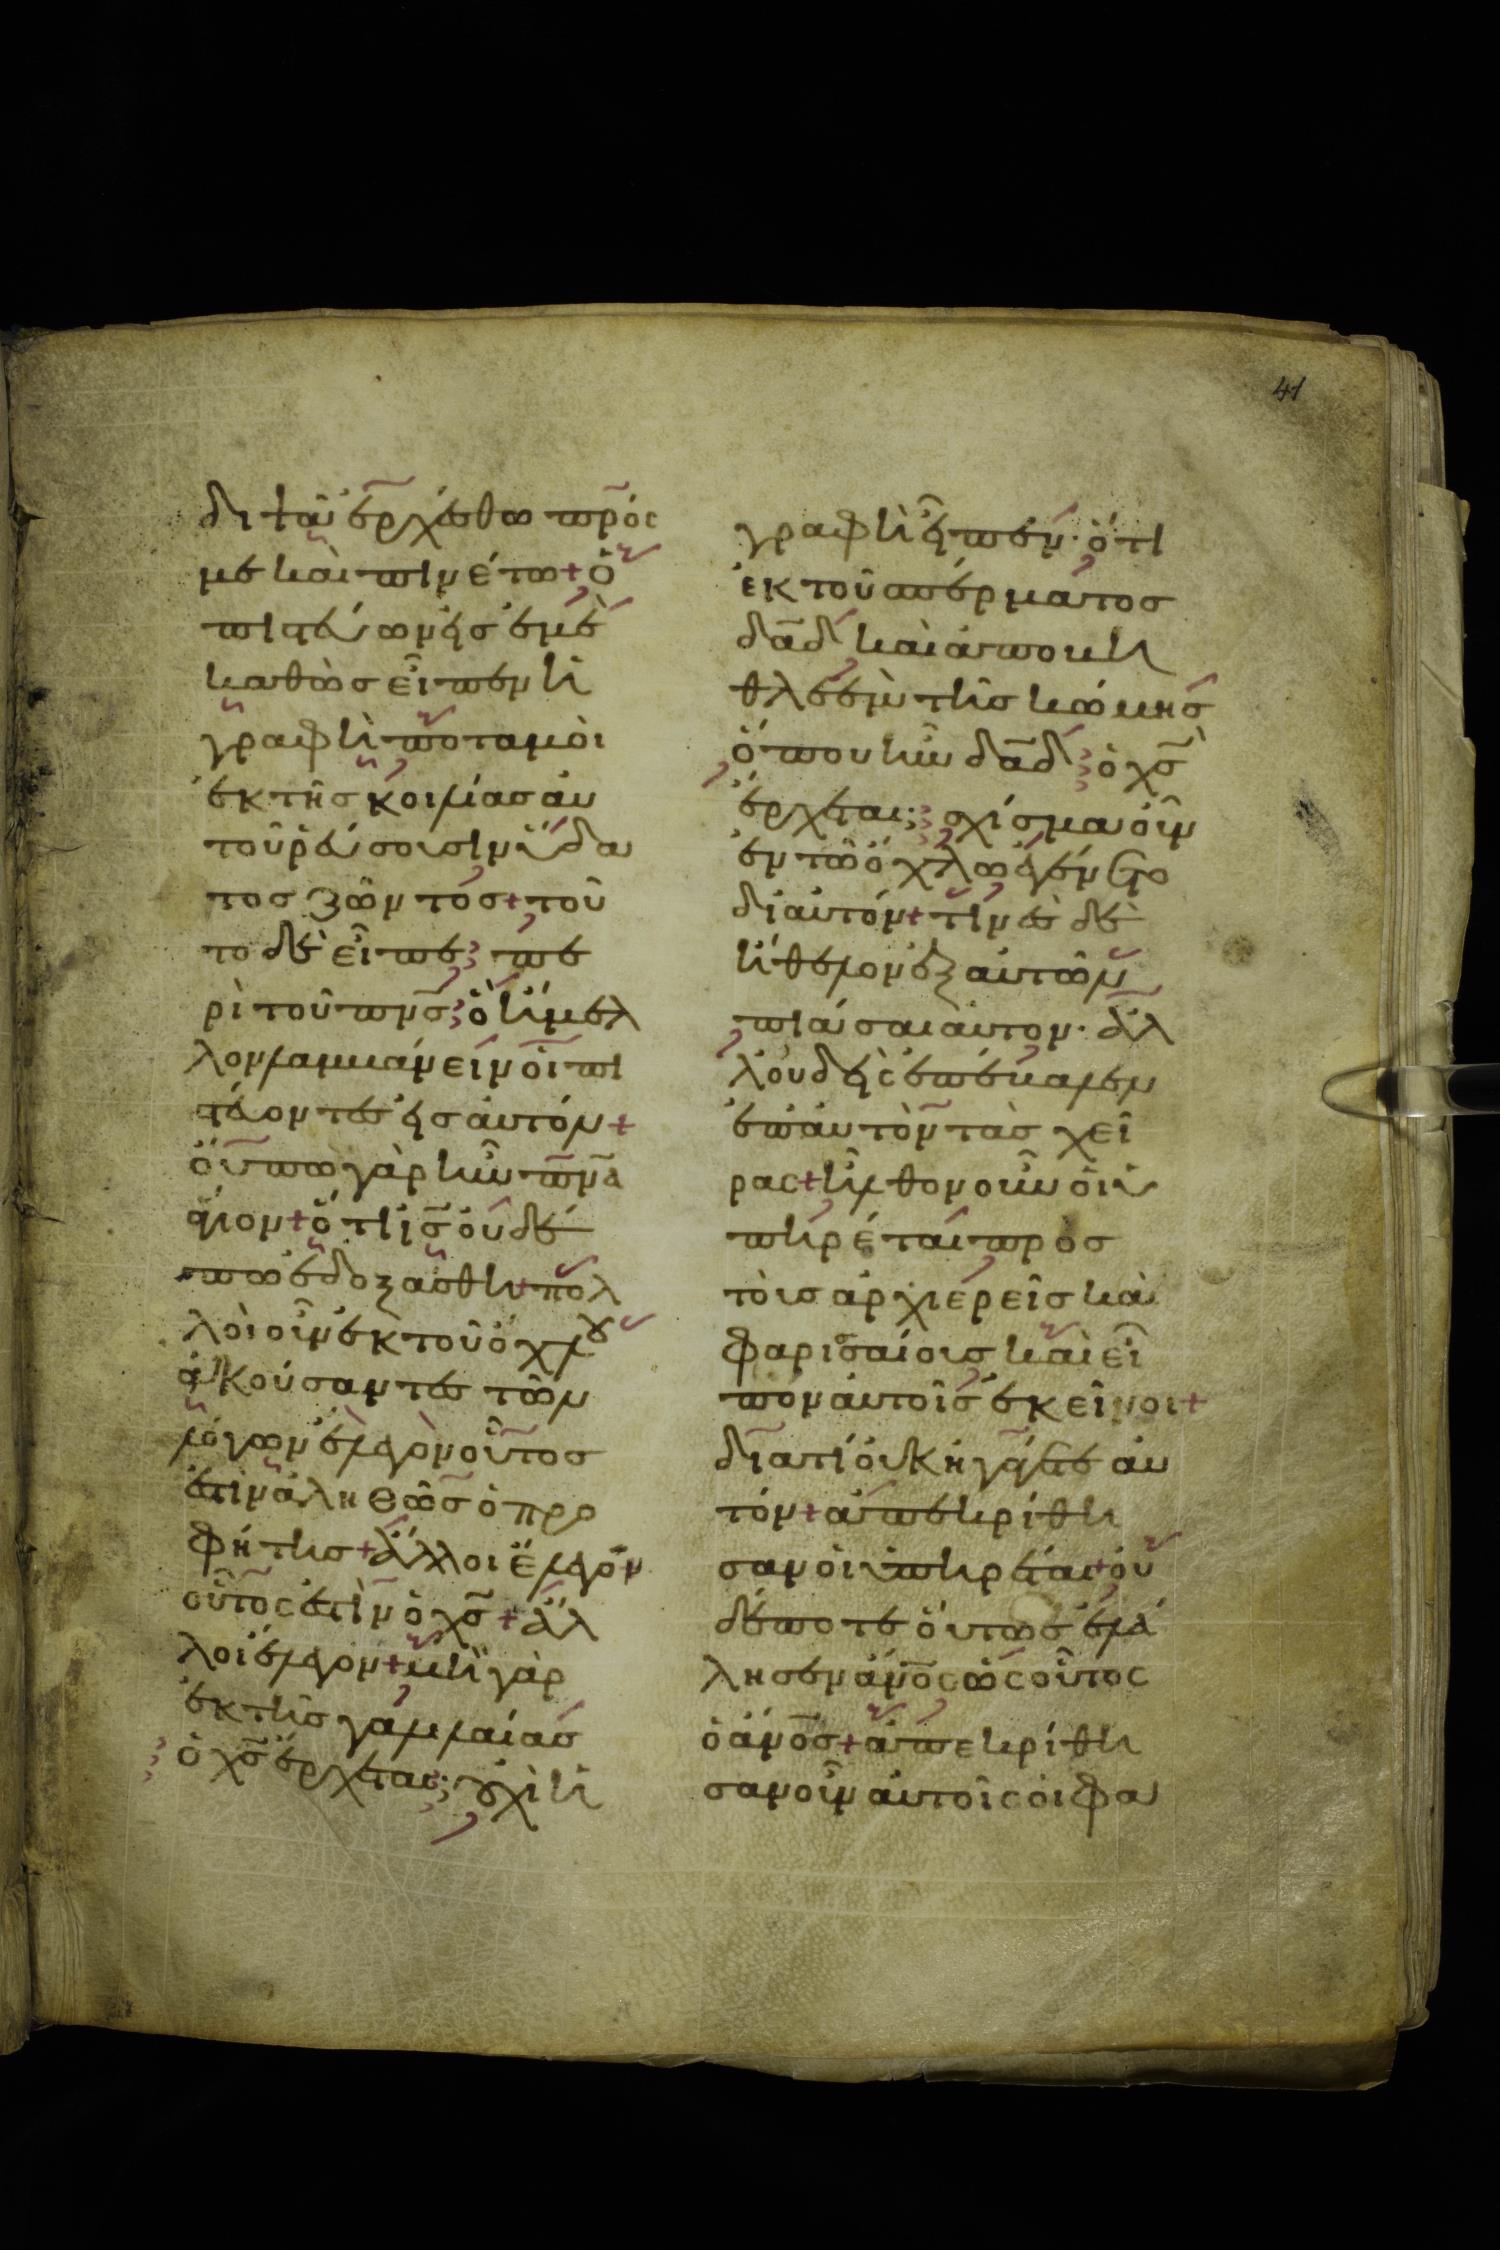 41
διψᾶ ἐρχέσθω πρός
με καὶ πινέτω + ὁ
πιστεύων εἰς ἐμὲ
καθὼς εἶπεν ἡ
γραφὴ ποταμοὶ
ἐκ τῆς κοιλίας αὐ
τοῦ ῥεύσουσιν ὕδα
τος ζῶντος + τοῦ
το δὲ εἶπε πε
ρὶ τοῦ πν̅σ̅ ὃ ἤμελ
λον λαμβάνειν οἱ πι
στεύοντες εἰς αὐτόν +
οὔπω γὰρ ἦν π̅ν̅α̅
ἅγιον + ὅτι ι̅σ̅ οὐδέ
πω ἐδοξάσθη + πολ
λοὶ οὖν ἐκ τοῦ ὄχλου
ἀκούσαντες τῶν
λόγων ἔλεγον οὗτος
ἐστιν ἀληθῶς ὁ προ
φήτης + ἄλλοι ἔλεγον
οὗτος ἐστὶν ὁ χ̅σ̅ + ἄλ
λοι ἔλεγον + μὴ γὰρ
ἐκ τῆς γαλιλαίας
ὁ χ̅σ̅ ἔρχεται; οὐχὶ ἡ
γραφὴ εἶπεν · ὅτι
ἐκ τοῦ σπέρματος
δ̅α̅δ̅ καὶ ἀπο βη
θλεὲμ τῆς κώμης
ὅπου ἦν δ̅α̅δ̅ ὁ χ̅σ̅
ἔρχεται; σχίσμα οὖν
ἐν τῶ ὄχλω ἐγένετο
δι αὐτόν + τινὲς δὲ
ἤθελον ἐξ αὐτῶν
πιάσαι αὐτον · ἀλ
λ οὐδεὶς ἐπέβαλεν
ἐπ αὐτὸν τὰς χεῖ
ρας + ἦλθον οὖν οἱ ὑ
πηρέται πρὸς
τοὺς ἀρχιερεῖς καὶ
φαρισαίους καὶ εἶ
πον αὐτοῖς ἐκεῖνοι +
διατί οὐκ ἠγάγετε αὐ
τόν + ἀπεκρίθη
σαν οἱ ὑπηρέται + οὐ
δέποτε οὕτως ἐλά
λησεν ἄν̅ο̅ς ὡς οὗτος
ὁ ἄν̅ο̅ς + ἀπεκρίθη
σαν οὖν αὐτοῖς οἱ φα